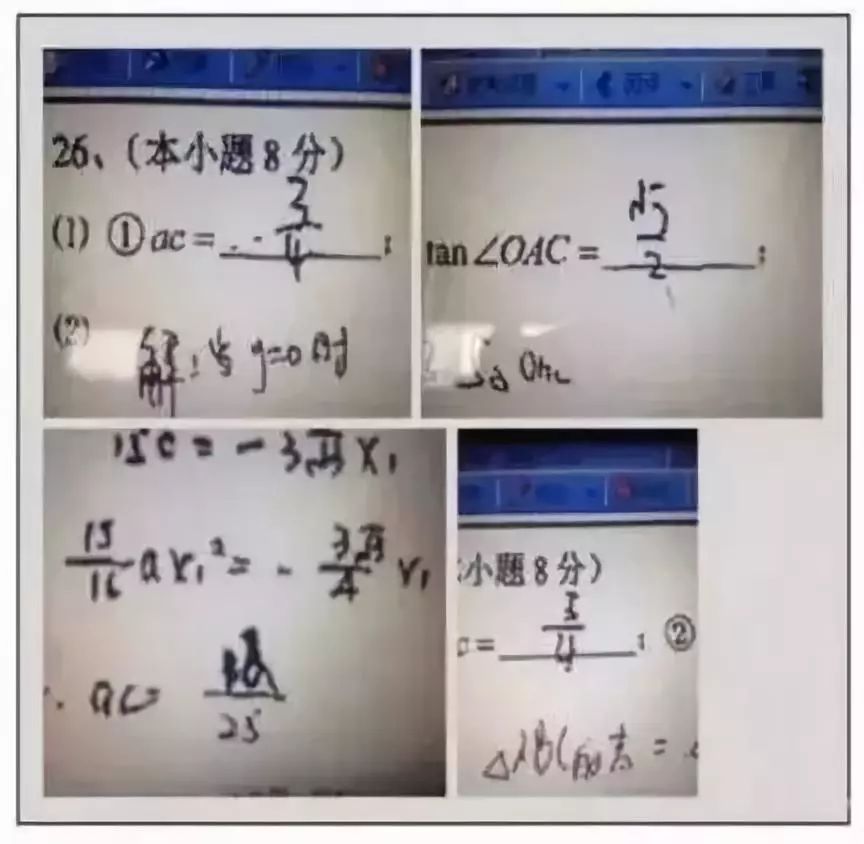 26、(本小题8分)
(1) ①ac = -3/4 ;
(2) 解:当y=0时
tan∠OAC = √5/2 ;
15c = -3√3 x₁
15/16 ax₁² = - 3√3/4 x₁
ac =
25
小题8分)
c = 3/4 ; ②
△ABC的高 =